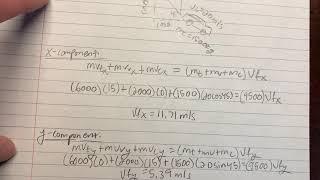 x-component:
mvtx + mvvx + mvcx = (mt+mv+mc) Vfx
(6000)(15)+(2000)(0)+(1500)(20cos45)=(9500)Vfx
Vfx = 11.71 m/s
y-component:
mvty + mvvy + mvcy = (mt+mv+mc) Vfy
(6000)(0)+(2000)(15)+(1500)(20sin45)=(9500)Vfy
Vfy = 5.39 m/s